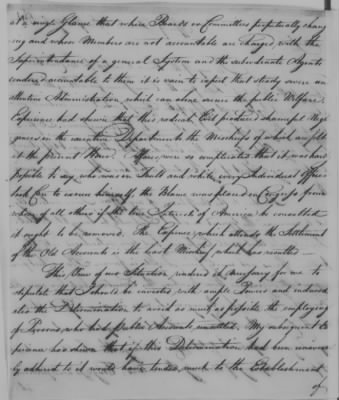 at a single Glance that where Boards or Committees perpetually chang
ing and where Members are not accountable are charged with the
Superintendance of a general System and the subordinate Agents
rendered accountable to them it is vain to expect that steady severe and
attentive Administration which can alone secure the public Welfare.
Experience had shewn that this radical Evil produced shameful Negli
gence in the executive Departments the Mischeifs of which are felt
at the present Hour. Affairs were so complicated that it was hardly
possible to say who was in Fault and while every Individual Officer
took Care to excuse himself the Blame was placed on Congress from
whom of all others if the true Interests of America be consulted
it ought to be removed. The Expence which attends the Settlement
of the Old Accounts is the last Mischeif which has resulted
This View of our Situation rendered it necessary for me to
stipulate that I should be invested with ample Powers and induced
also the Determination to avoid as much as possible the employing
of Persons who had public Accounts unsettled. My subsequent Ex
perience has shewn that if this Determination had been invariab
ly adhered to it would have tended much to the Establishment
of